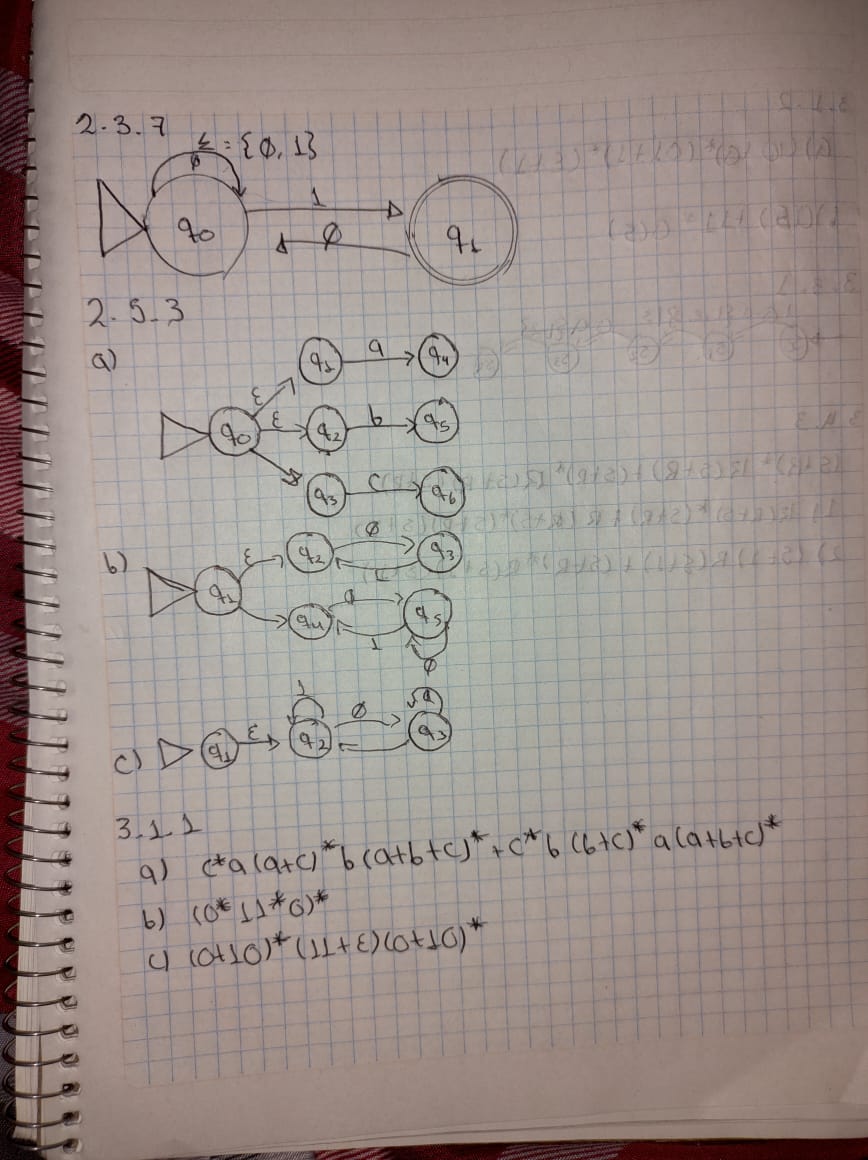 2.3.7
Σ = {0, 1}
0
q0 1 q1
0
2.5.3
a)
q1 a q4
ε
q0 ε q2 b q5
q3 c q6
b)
ε q2 0 q3
q1 1
q4 0 q5
1
0
c)
1 0
q1 ε q2 q3
3.1.1
a) c*a(a+c)*b(a+b+c)*+c*b(b+c)*a(a+b+c)*
b) (0*11*0)*
c) (0+10)*(11+ε)(0+10)*